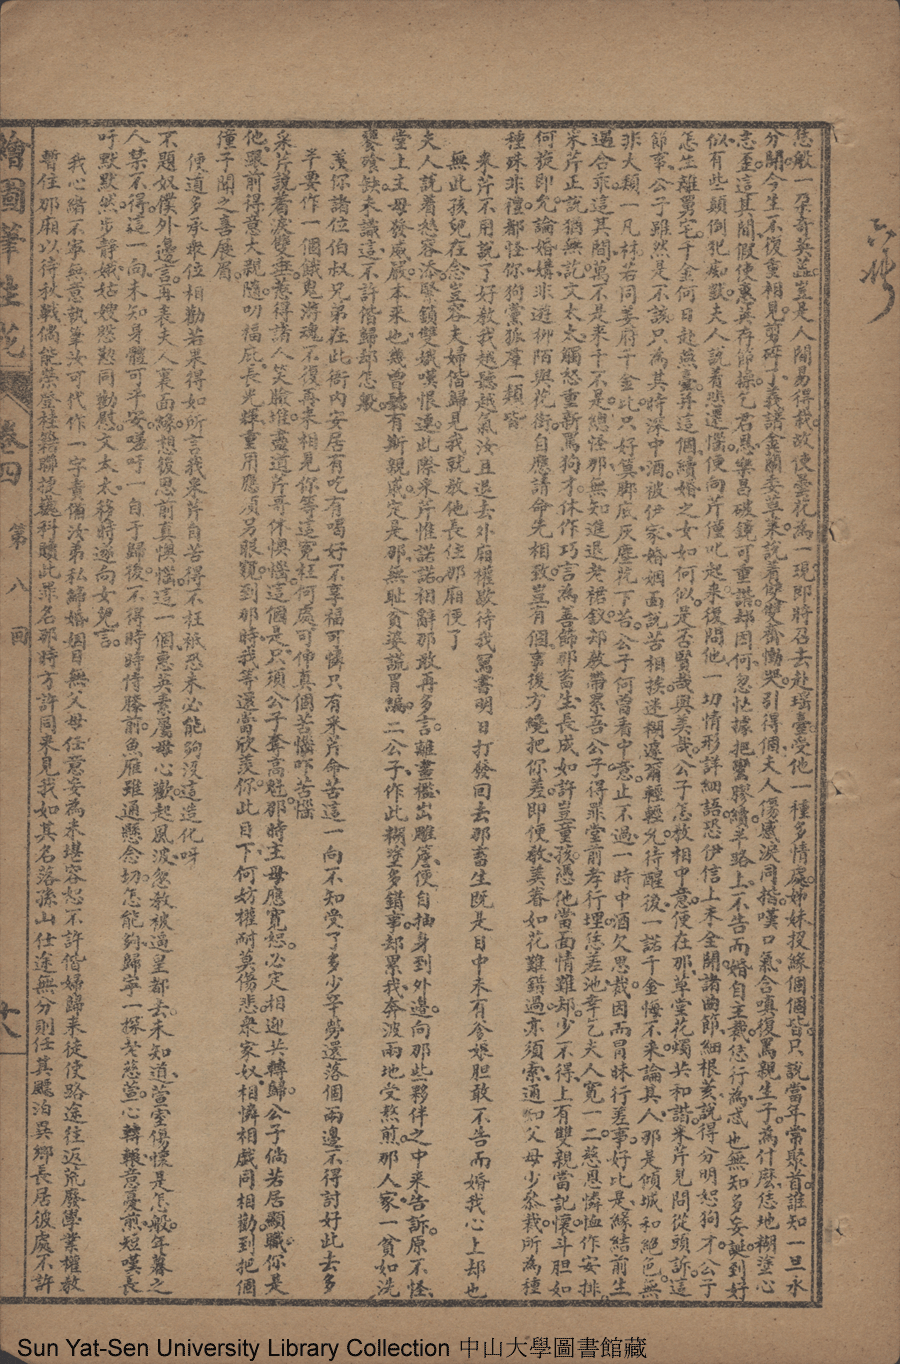 恁般一朶奇英蕋豈是人間易得栽故使曇花為一現即將召去赴瑶臺受他一種多情處姊妹投緣個個皆只說當年常聚首誰知一旦永
分開今生不復重相見剪碎了義譜金蘭委草萊說着傻雙齋慟哭引得個夫人傷感淚同揩嘆口氣含嗔復罵親生子為什麽恁地糊塗心
志至這其間假使惠英存節操乞君恩樂昌破鏡可重諧却因何忽怯據把鸞膠續半路上不告而婚自主裁恁行為忒也無知多妄誕到好
似有些顛倒犯痴獃夫人說着悲還惱便向芹僅叱起來復問他一切情形詳細語恐伊信上未全開諸曲節細根荄說得分明恕狗才公子
怎生離舅宅千金何日赴燕臺并這個續婚之女如何似是否賢哉與美哉公子怎被相中意便在那草堂花燭共和諧釆芹見問從頭訴這
節事公子雖然是不該只為其時深中酒被伊家婚姻面說苦相挨迷糊濅爾輕輕允待醒後一諾千金悔不來論其人那是傾城和絕色無
非大類一凡枺若同姜府千金比只好箕脚底灰塵花下苔公子何曾看中意止不過一時中酒欠思裁因而冒昧行差事好比是緣結前生
遇合乖這其間萬不是來千不是總怪那無知進退老裙釵却教帶累吾公子得罪堂前孝行埋恁差池幸乞夫人寛一二慈恩憐恤作安排
釆芹正說猶無訖文太太觸怒重新罵狗才休作巧言為善飾那畜生長成如許豈童孩憑他當面情難却少不得上有雙親當記懷斗胆如
何旋即允論婚媾非遊栁陌與花街自應請命先相致豈有個事後方纔把你差即便教美眷如花難錯過亦須索通知父母少叅裁所為種
種殊非禮都怪你狗黨狐羣一類皆
釆芹不用說了好教我越聽越氣汝且退去外廂權歇待我寫書明日打發回去那畜生既是目中未有爹娘胆敢不告而婚我心上却也
無此孩兒在念豈容夫婦偕歸見我就教他長住那廂便了
夫人說着怒容添緊鎖雙蛾嘆恨連此際釆芹惟諾諾相辭那敢再多言離畫檻出雕簷便自抽身到外邊向那些夥伴之中來告訴原不怪
堂上主母發威嚴本來也幾曾聽有斯親戚定是那無耻貧婆謊冒編二公子作此糊塗多錯事却累我奔波兩地受熬煎那人家一貧如洗
饔飱缺未識這不許偕歸却怎厭
羨你諸位伯叔兄弟在此衙内安居有吃有喝好不享福可憐只有釆芹命苦這一向不知受了多少辛勞還落個兩邊不得討好此去多
半要作一個餓鬼游魂不復再來相見你等這寃枉何處可伸真個苦惱吓苦惱
釆芹說着淚雙垂惹得諸人笑臉堆盡道芹哥休懊惱這個是只須公子奪高魁那時主母應寛恕必定相迎共轉歸公子倘若居顯職你是
他跟前得意大親隨叨福庇長光輝重用應須另眼窺到那時我等還當欣羨你此目下何妨權耐莫傷悲衆家奴相憐相戲同相勸到把個
僮子聞之喜展眉
便道多承衆位相勸若果得如所言我釆芹自苦得不枉祇恐未必能夠沒這造化呀
不題奴僕外邊言再表夫人裏面緣想後思前真懊惱這一個惠英素屬母心歡起風波忽教被逼皇都去未知道萱室傷懷是怎般年暮之
人某不得這一向未知身體可平安嗟吁一自于歸後不得時時侍膝前魚雁雖通懸念切怎能夠歸寧一探老慈萱心轉輾意憂煎短嘆長
吁默默然步靜娥姑嫂慇懃同勸慰文太太移時遂向女兒言
我心緒不寧無意執筆汝可代作一字責備汝弟私歸婚姻目無父母任意妄為未堪容恕不許偕婦歸來徒使路途往返荒廢學業權教
暫住那廂以待秋戰倘能榮登桂籍聯授巍科贖此罪名那時方許同來見我如其名落孫山仕途無分則任其飄泊異鄉長居彼處不許
繪圖筆生花
卷四
第八回